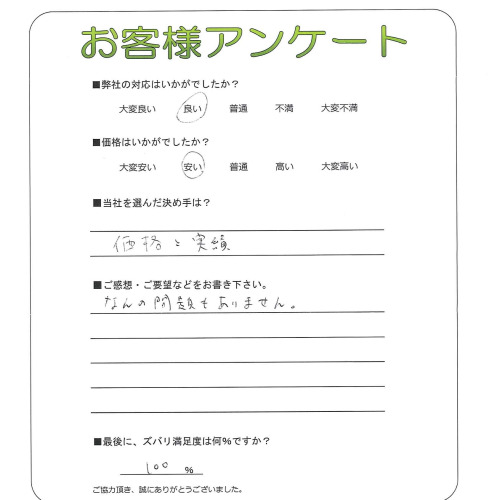 お客様アンケート
■弊社の対応はいかがでしたか？
大変良い 良い 普通 不満 大変不満
■価格はいかがでしたか？
大変安い 安い 普通 高い 大変高い
■当社を選んだ決め手は？
価格と実績
■ご感想・ご要望などをお書き下さい。
なんの問題もありません。
■最後に、ズバリ満足度は何%ですか？
100 %
ご協力頂き、誠にありがとうございました。